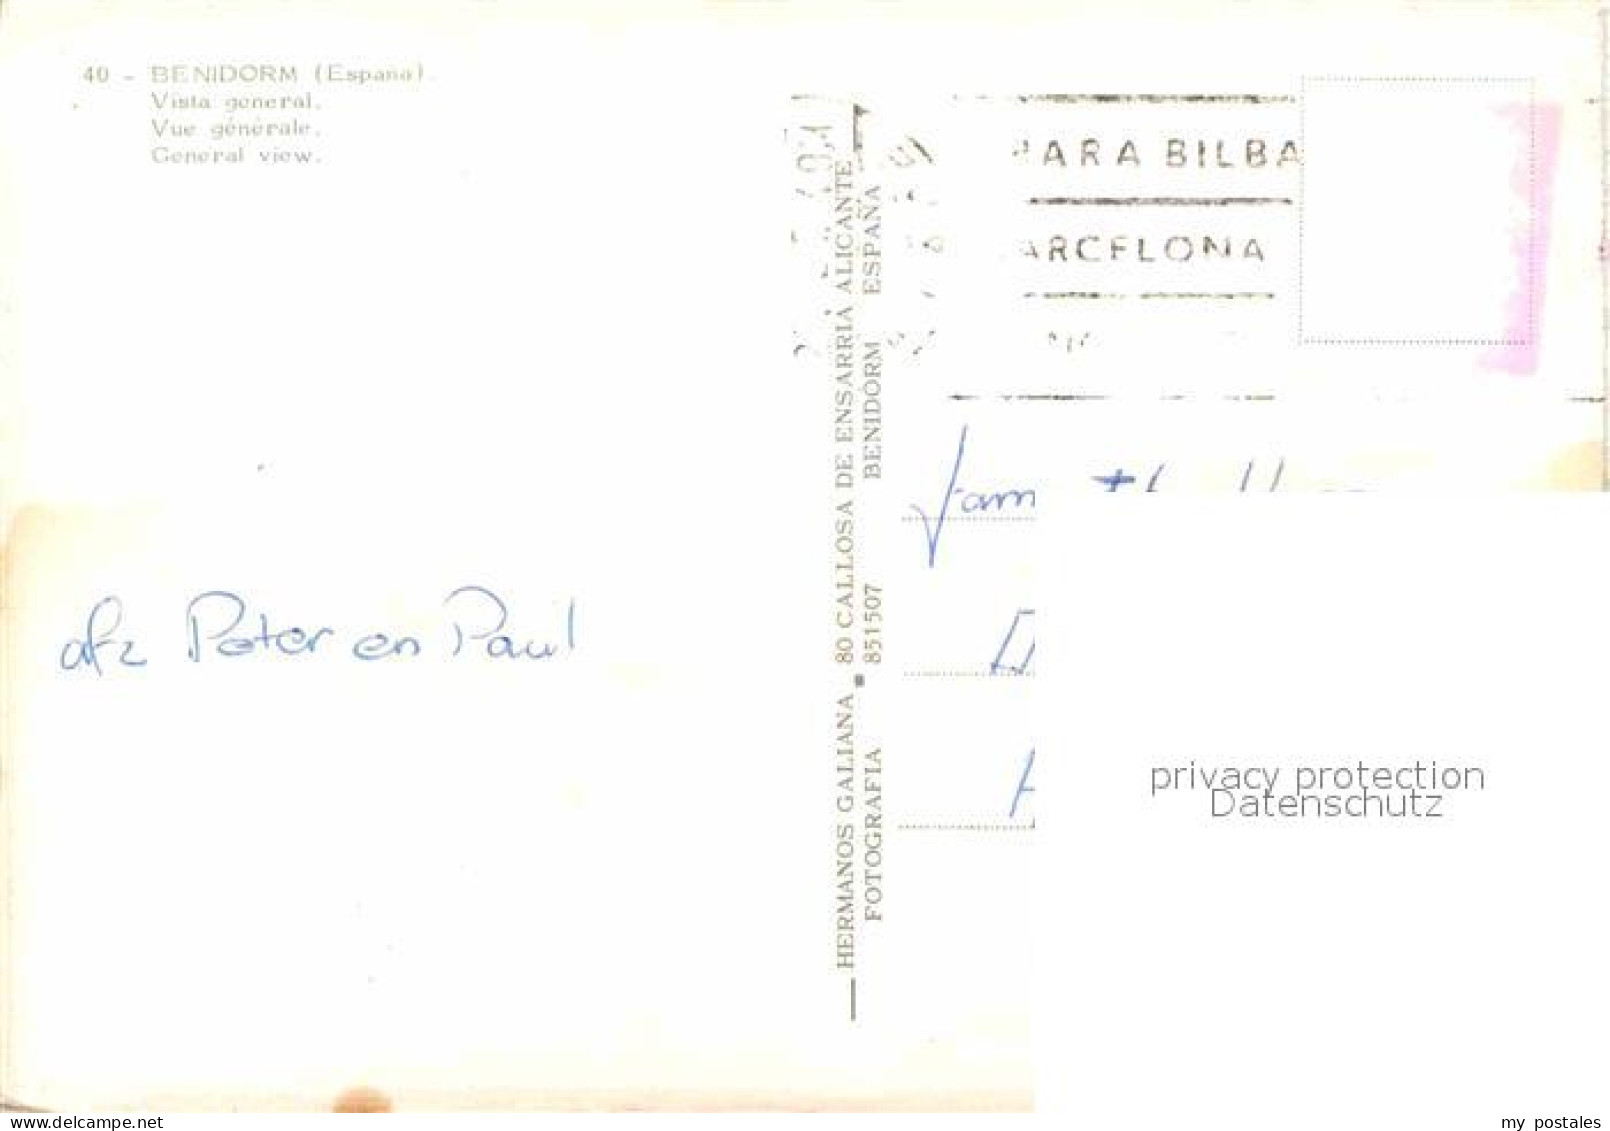 40 - BENIDORM (España).
Vista general.
Vue générale.
General view.
PARA BILBA
ARCELONA
HERMANOS GALIANA 80 CALLOSA DE ENSARRIÁ ALICANTE
FOTOGRAFIA 851507 BENIDORM ESPAÑA
Fam
afz Peter en Paul
privacy protection
Datenschutz
www.delcampe.net
my postales